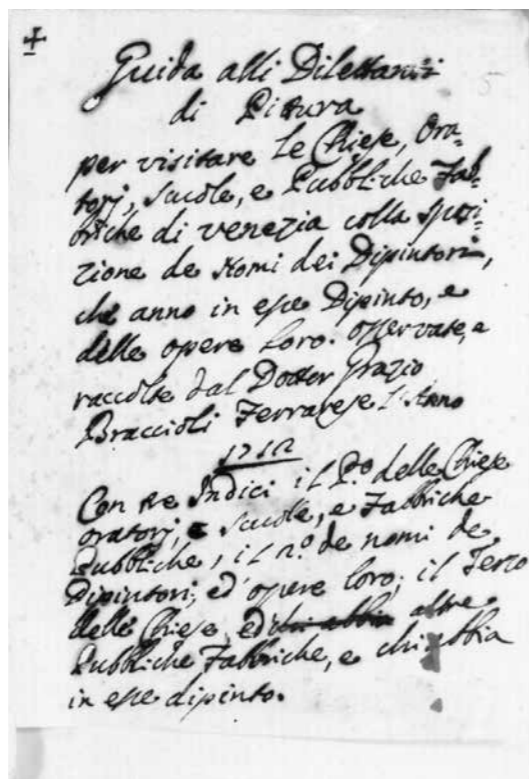 Guida alli Dilettanti
di Pittura
per visitare le Chiese, Ora-
torj, scuole, e Pubbliche Fab-
briche di venezia colla
zione de Nomi dei Dipintori,
che anno in esse Dipinto, e
delle opere loro. osservate, e
raccolte dal Dottor Grazio
Braccioli Ferrarese l'Anno
1712
Con tre Indici il P.º delle Chiese
oratorj, e scuole, e Fabbriche
Pubbliche, il de nomi de
Dipintori, ed opere loro; il Terzo
delle Chiese, ed altre
Pubbliche Fabbriche, e chi abbia
in esse dipinto.